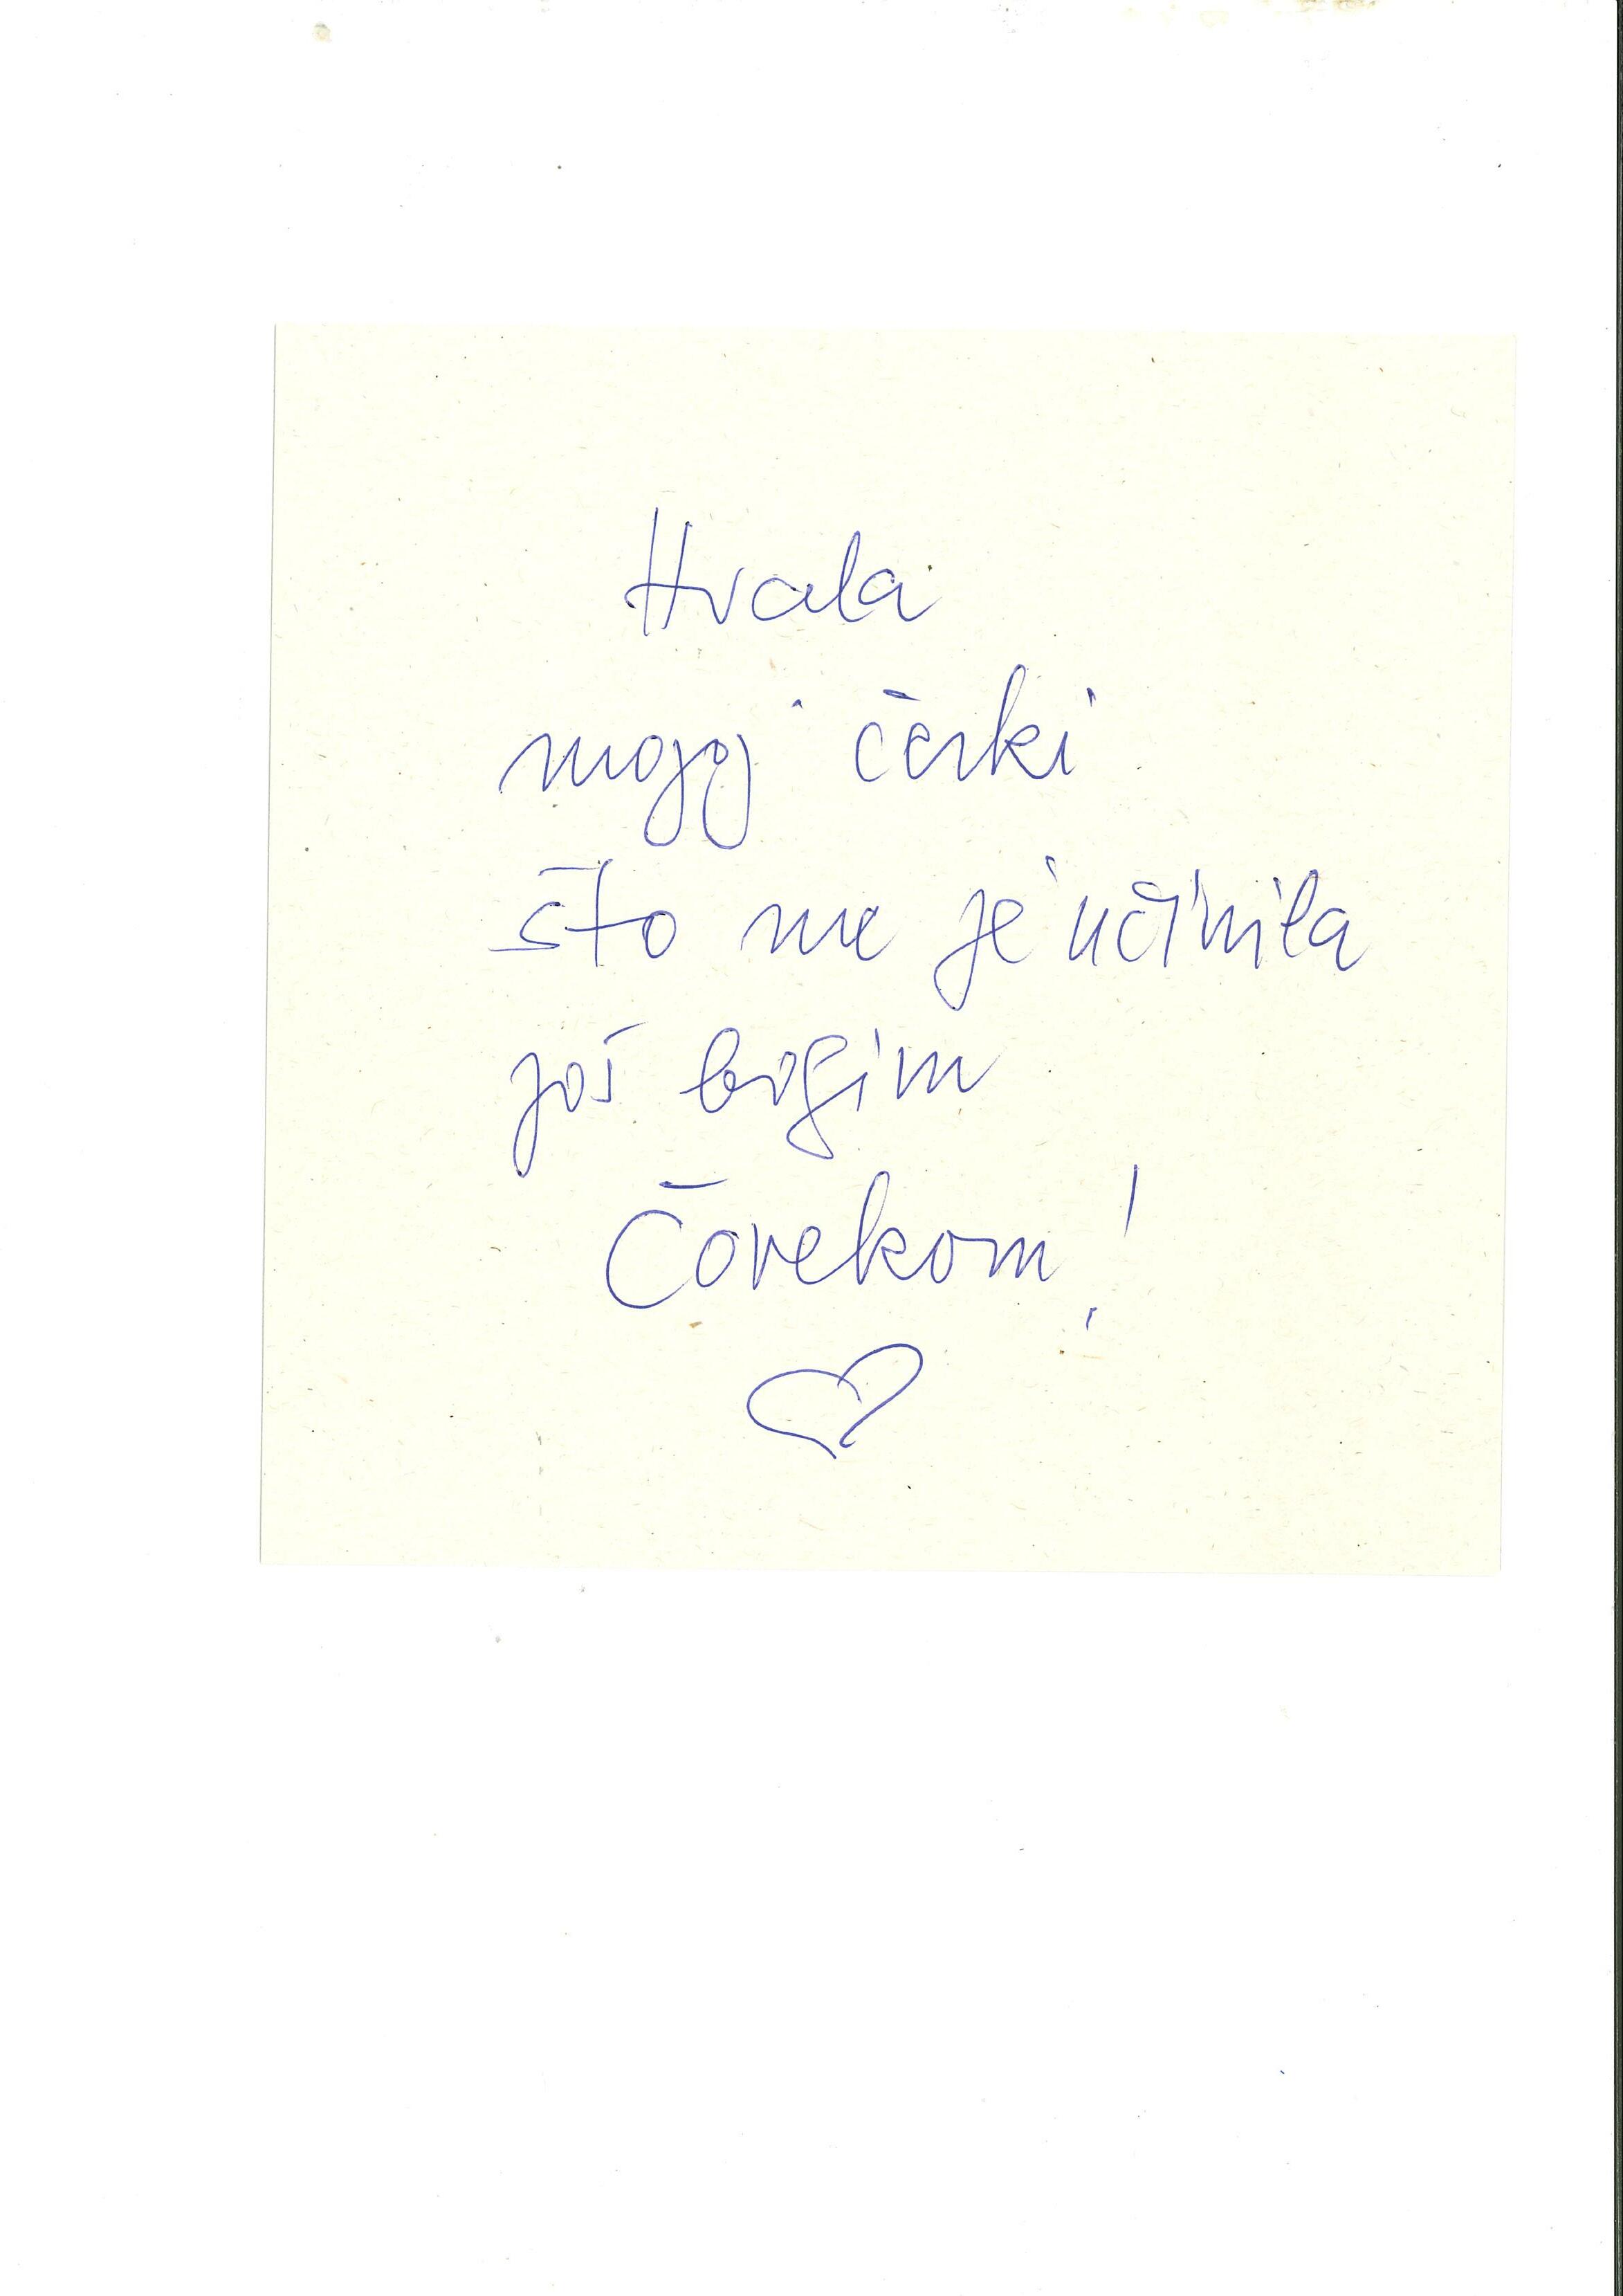 Hvala
mojoj ćerki
što me je učinila
još boljim
Čovekom!